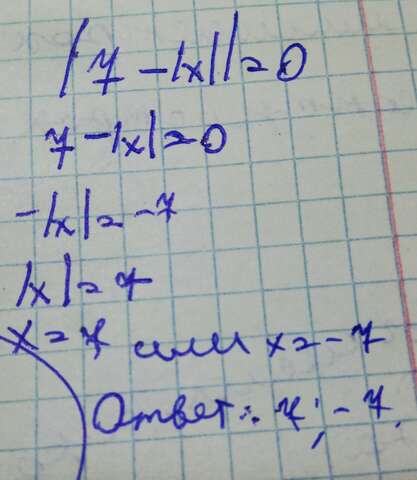 |7 - |x|| = 0
7 - |x| = 0
-|x| = -7
|x| = 7
x = 7 или x = -7
Ответ: 7; -7.